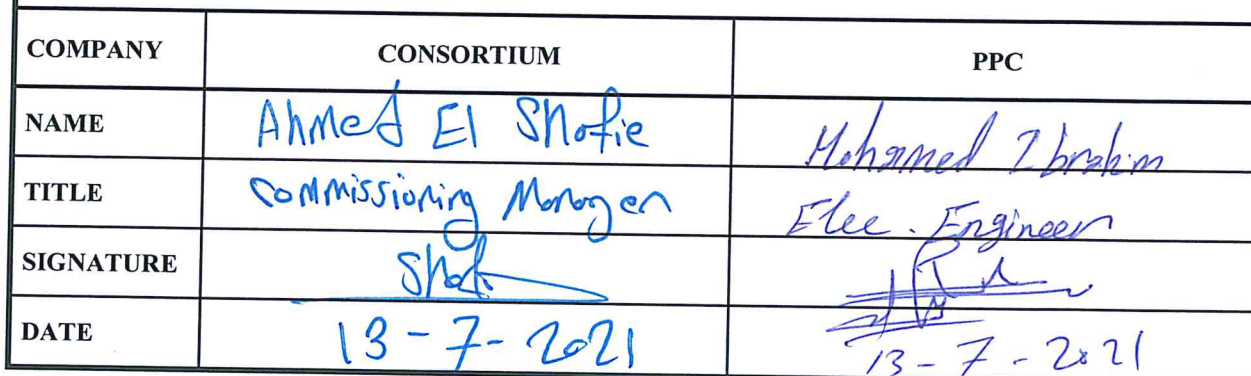 COMPANY CONSORTIUM PPC
NAME Ahmed El Shafie Mohamed Ibrahim
TITLE Commissioning Manager Elec. Engineer
SIGNATURE Shaf
DATE 13-7-2021 13-7-2021